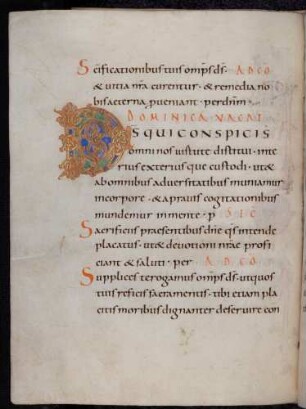 Scificationibus tuis omps ds · AD CO
& uitia nra curentur · & remedia no
bis aeterna pueniant · per dnm ·
DOMINICA VACAT
DS QUI CONSPICIS
omni nos uirtute destitui · inte
rius exterius que custodi · ut &
ab omnibus aduersitatibus muniamur
in corpore · & aprauis cogitationibus
mundemur in mente · p SEC
Sacrificiis praesentibus dne qs intende
placatus · ut & deuotioni nrae profi
ciant & saluti · per AD CO
Supplices te rogamus omps ds · ut quos
tuis reficis sacramentis · tibi etiam pla
citis moribus dignanter deseruire con